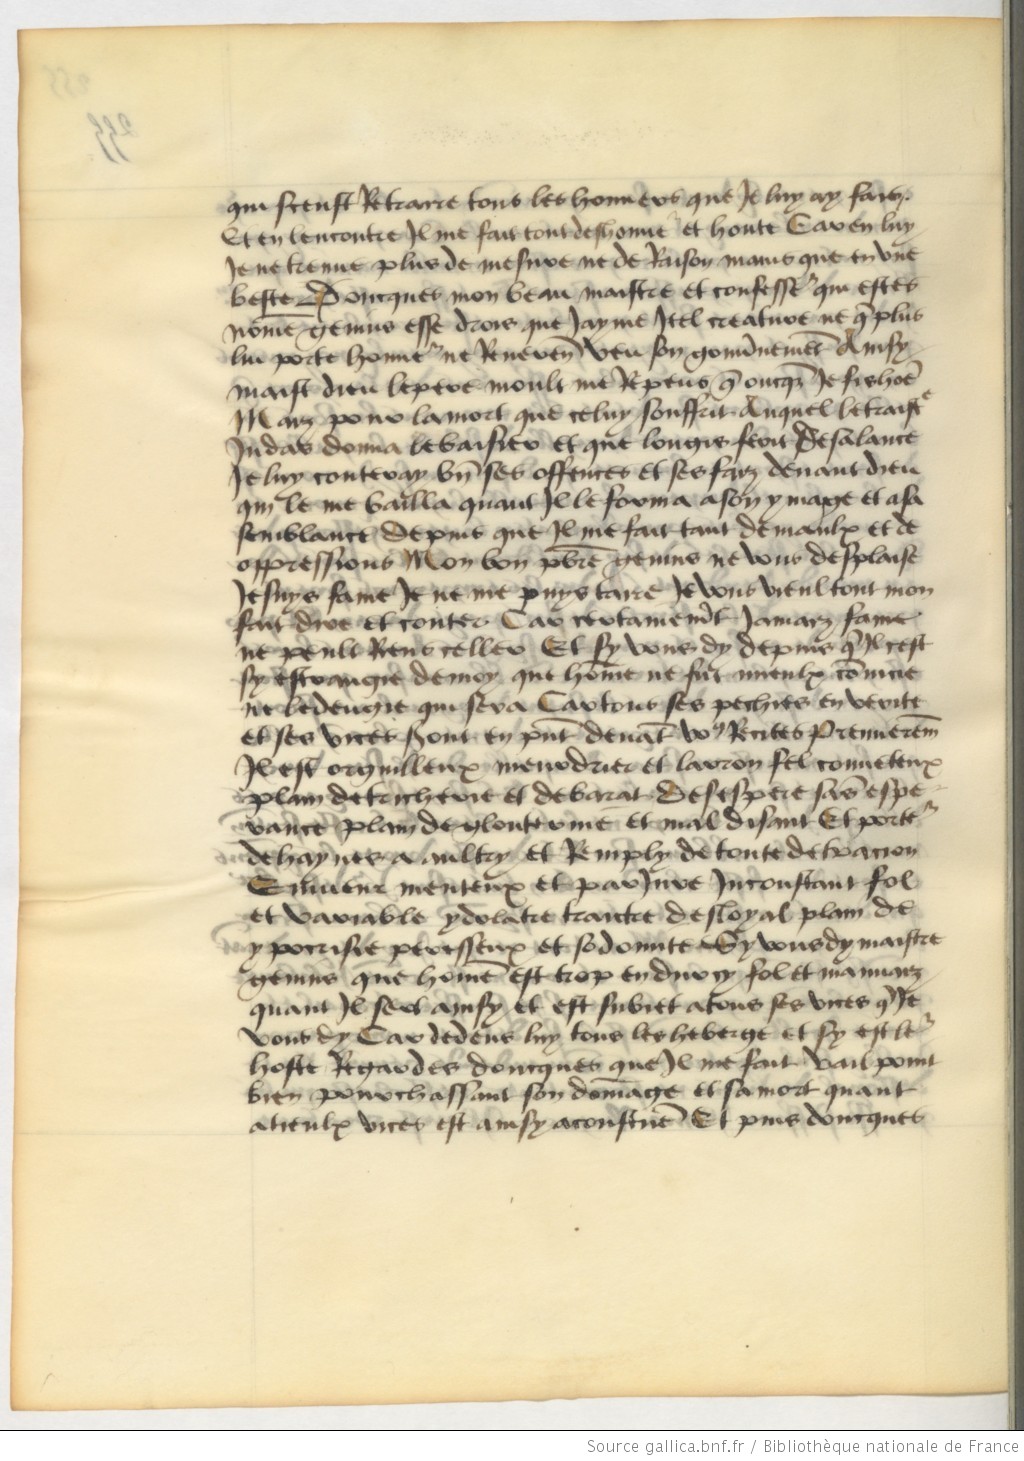 qui sceust Retraire tous les honneurs que Je luy ay fais
Et en lencontre Il me fait tout deshonne͛ et honte Car en luy
Je ne treuue plus de mesure ne de Raison mains que en vne
beste Doncques mon beau maistre et confesse͛ qui estes
nōme genius esse drois que Jayme Itel creature ne q̄ plus
lui porte honne͛ ne Reueren̄ veu son gouūnemēt Ainsy
maist dieu le pere moult me Repens q̄ oncq̄ Je fis hōe
Mais pour la mort que celuy souffrit Auquel le traistre
Judas donna le baisier et que longis ferit de sa lance
Je luy conteray bn̄ ses offences et ses fais deuant dieu
qui le me bailla quant Il le forma a son ymage et a sa
semblance depuis que Il me fait tant de maulx et de
oppressions Mon bon pb̄re genius ne vous desplaise
Je suys fame Je ne me puys taire Je vous vieul tout mon
fait dire et conter Car certainemēt Jamais fame
ne peult Rens celler Et sy vous dy depuis q̄ Il cest
sy estrangie de moy que hōme ne fut mieulx
ne ledengie qui sera Car tous ses pechies en verite
et ses vices sont en pn̄t deuāt vo⁹ Recites Premieremēt
Il est orguilleux meurdrier et larron fel conueteux
plain de tricherie et de barat desespere sās espe
rance plain de gloutennie et mal disant Et porte͛
de haynes a aultry et Remply de toute detracion
Enuieux menteux et pariure Inconstant fol
et variable ydolatre traitre desloyal plain de
ypocrisie peresseux et sodomite Sy vous dy maistre
genius que hōme est trop endurcy fol et mauuais
quant Il sert ainsy et est subiet a tous ses vices q̄ Je
vous dy Car dedens luy tous les heberge et sy est le͛
hoste Regardes doncques que Il me fait vait point
bien pourchassant son dōmage et sa mort quant
a tieulx vices est ainsy acoustūe Et puis doncques
Source gallica.bnf.fr / Bibliothèque nationale de France